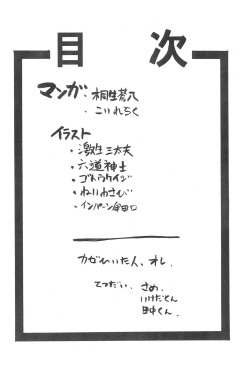 目次
マンガ・桐生蒼八
・こいれちく
イラスト
・激生三太夫
・六道神士
・ゴトウケイジ
・ねりわさび
・インパーン今田口
カゼひいた人、オレ.
てつだい. さめ.
いけだくん
田中くん.